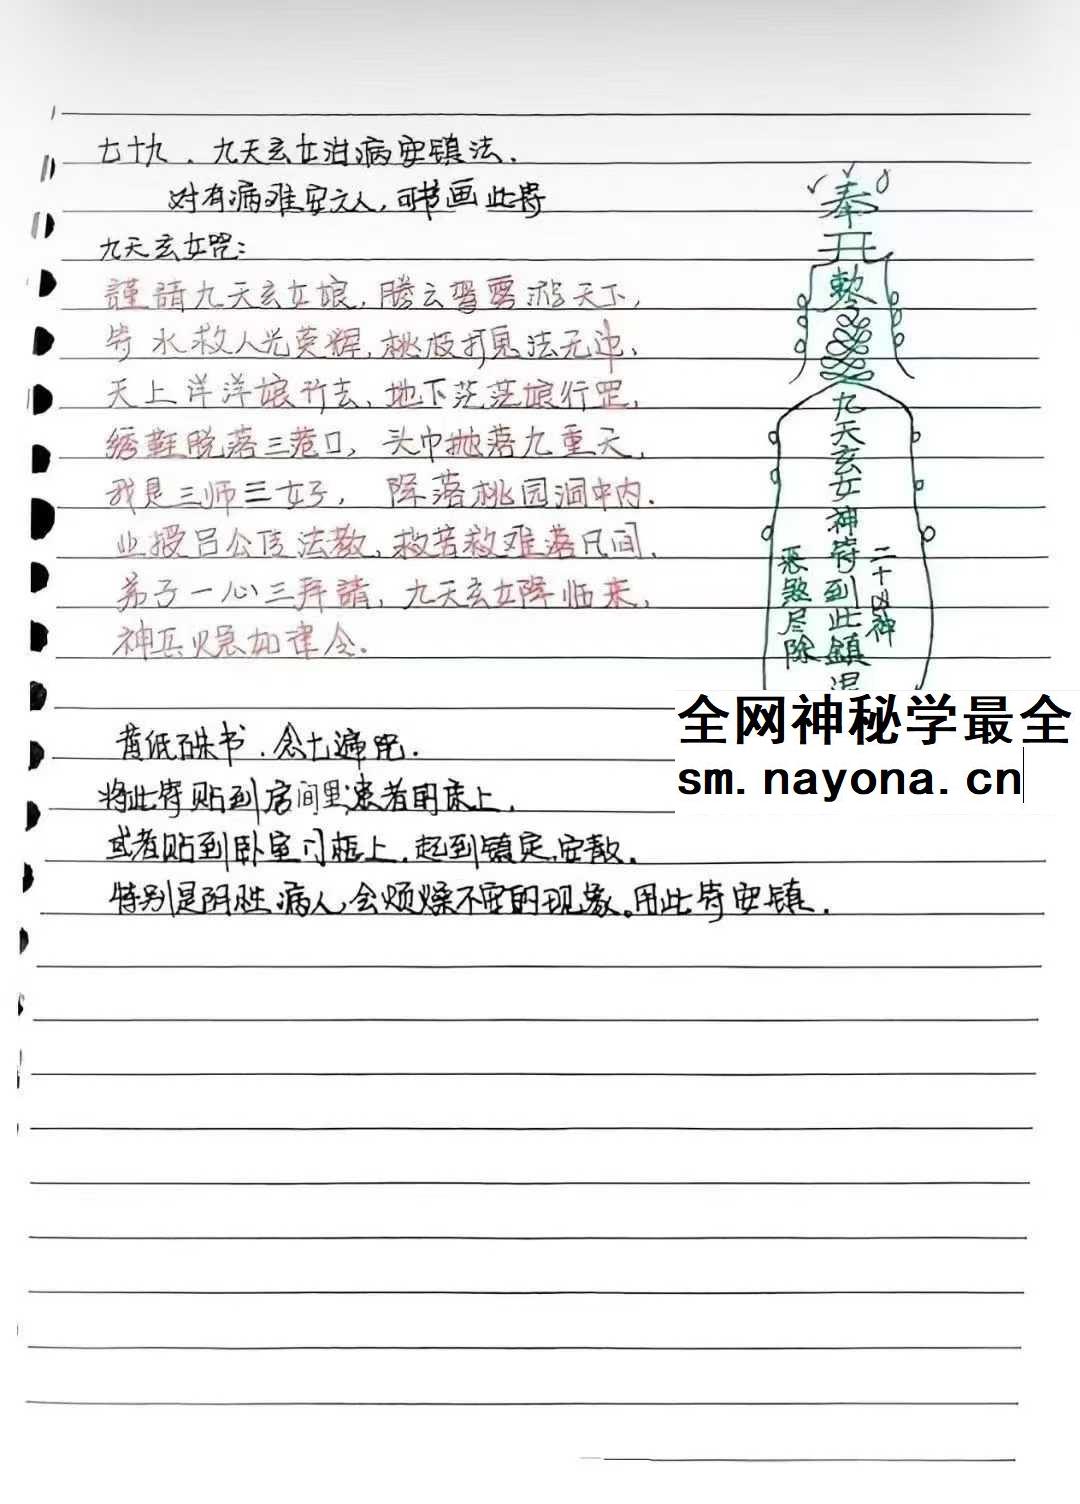 七十九．九天玄女治病安镇法．
对有病难安之人，可书画此符
九天玄女咒：
謹請九天玄女娘，腾云驾雾游天下，
符水救人光英辉，桃枝打鬼法无边，
天上洋洋娘行去，地下茫茫娘行罡，
绣鞋脱落三巷口，头巾抛落九重天，
我是三师三女子，降落桃园洞中内．
业授吕公传法教，救苦救难落凡间，
弟子一心三拜請，九天玄女降临来，
神兵火急如律令．
黄纸硃书．念七遍咒．
将此符贴到房间里患者的床上，
或者贴到卧室门框上．起到镇定，安散．
特别是阴性病人，会烦燥不安的现象。用此符安镇．
奉
敕
九天玄女神符到此鎮
二十凶神
恶煞尽除
全网神秘学最全
sm.nayona.cn